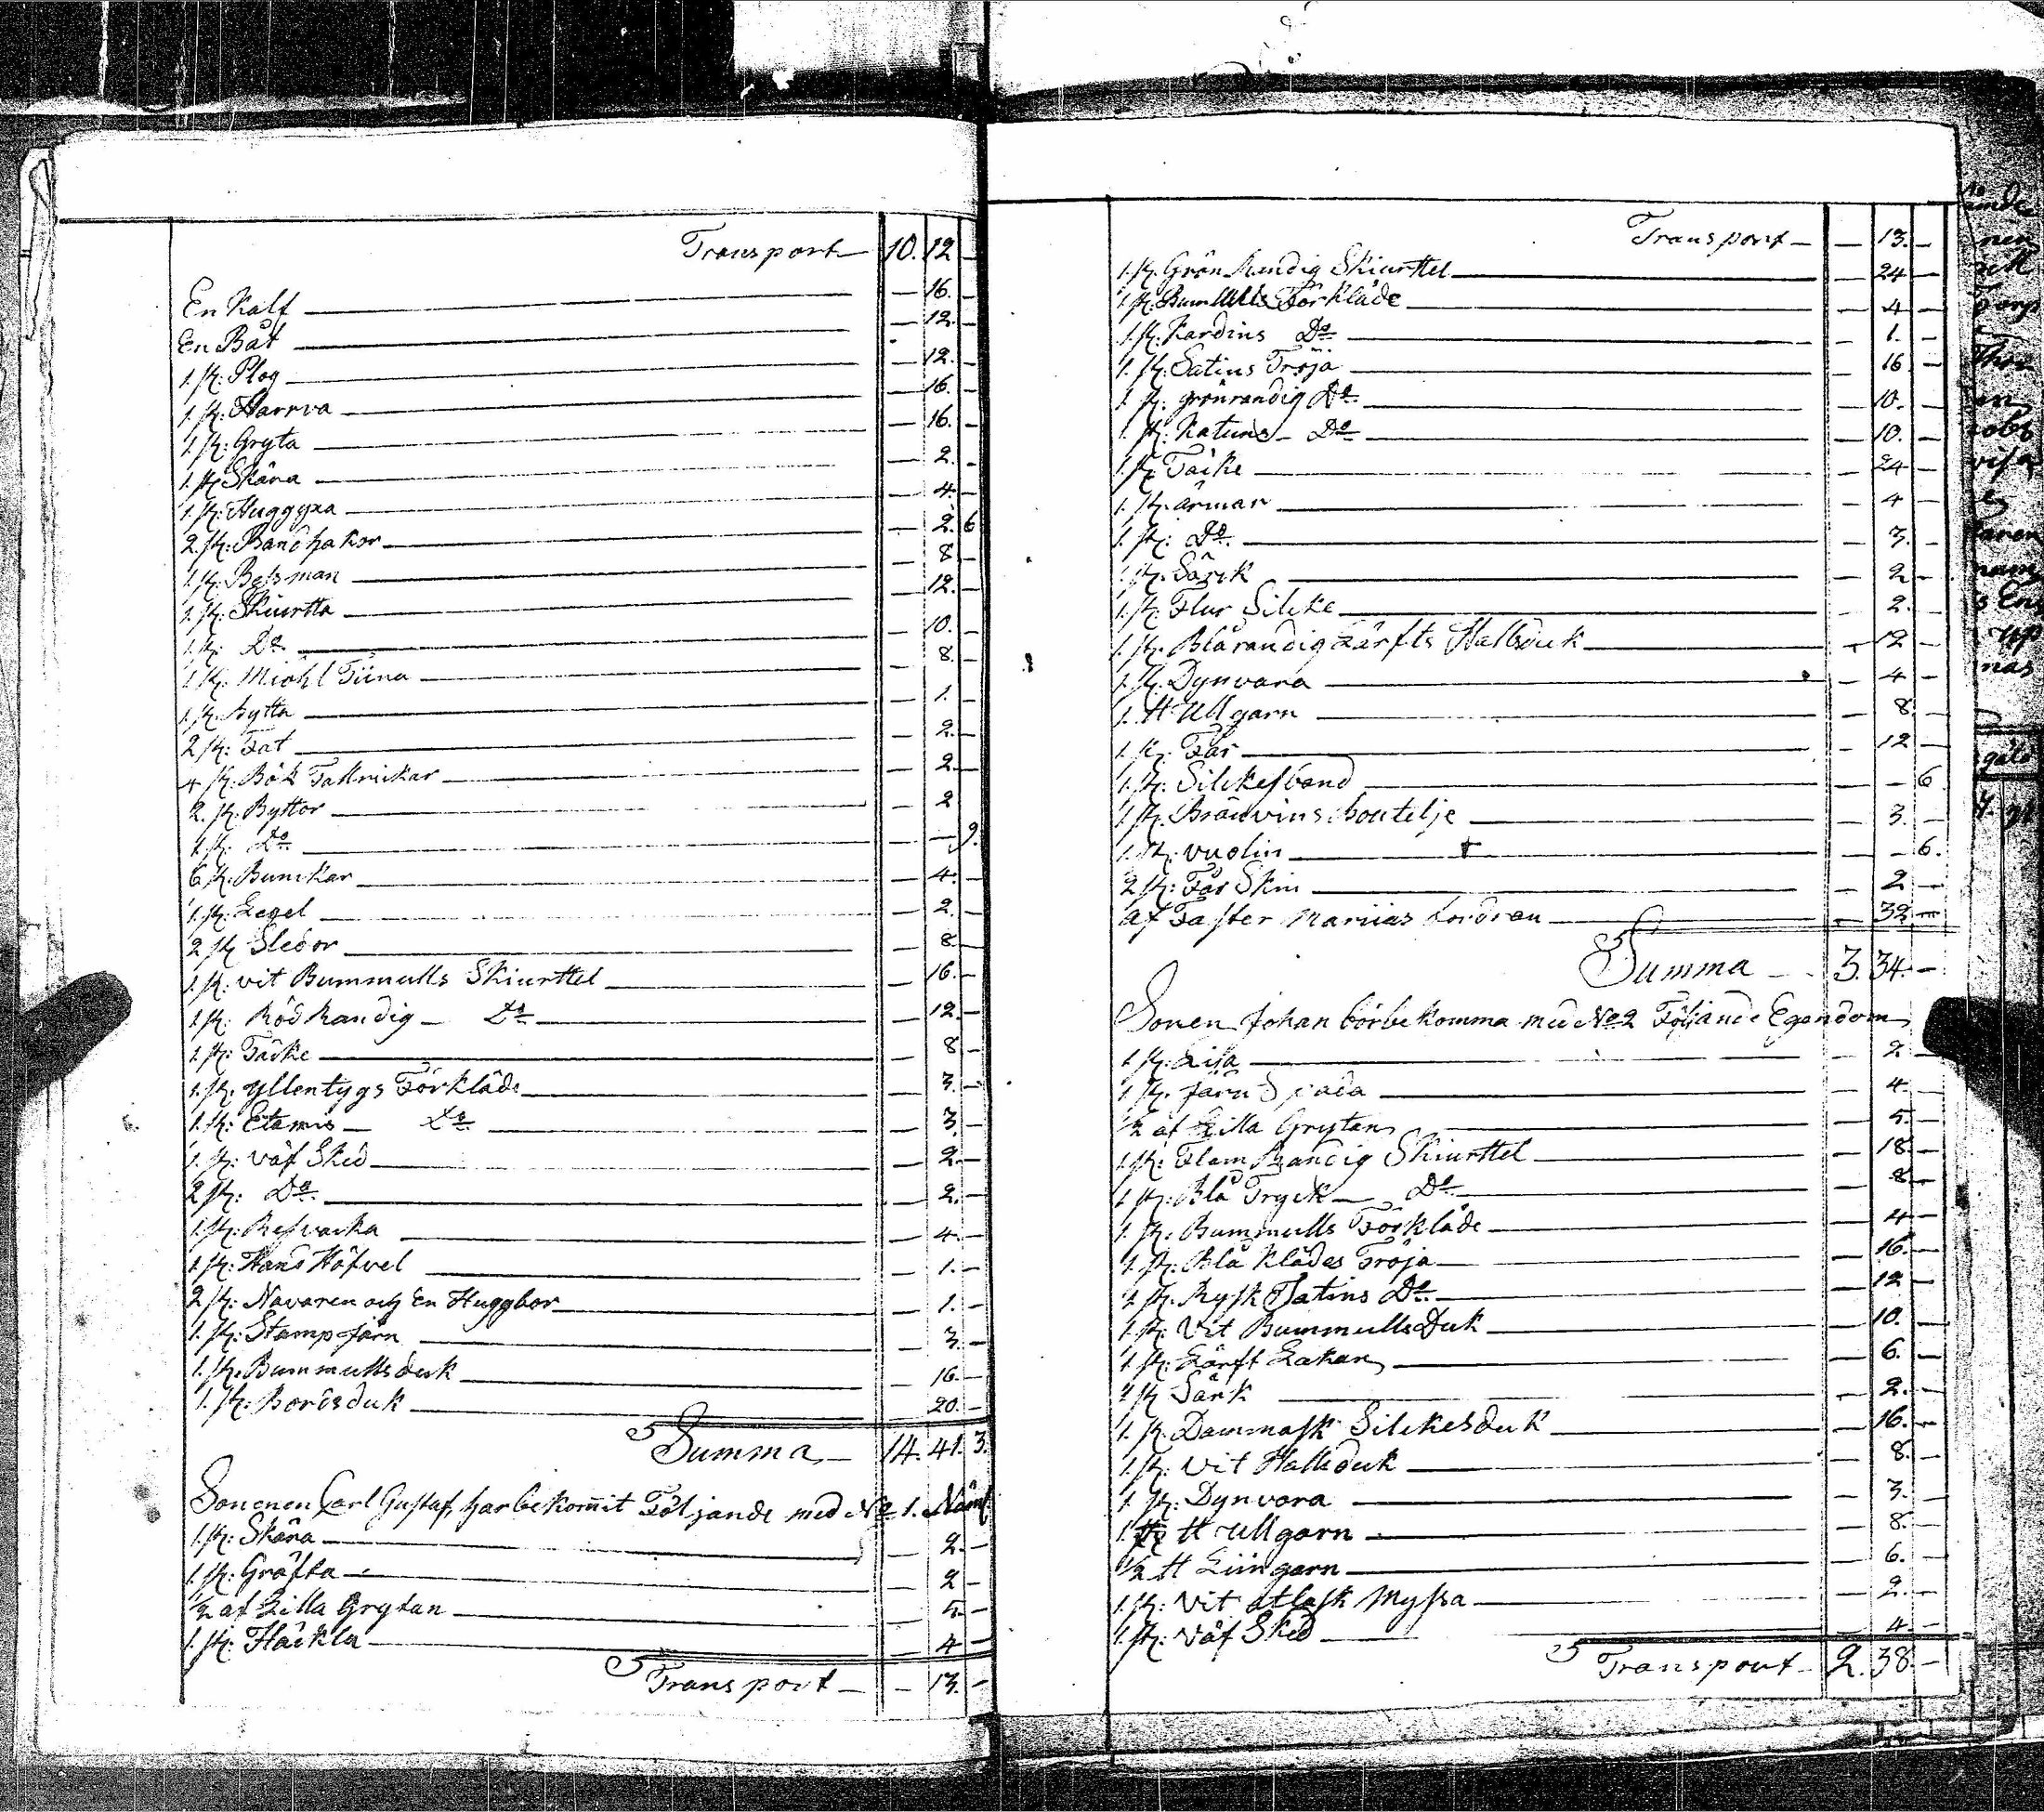 Transport — 10. 12 —
En Kalf — — 16. —
En Båt — — 12. —
1. st: Plog — — 12. —
1. st: Harrva — — 16. —
1. st: Gryta — — 16. —
1. st: Skära — — 2. —
1. st: Huggyxa — — 4. —
2. st: Bandhakor — — 2. 6
1. st: Bessman — — 8 —
1. st: Skiurtta — — 12. —
1. st: Do — — 10. —
1. st: Miöhl Tiina — — 8. —
1. st: bytta — — 1. —
2 st: Fat — — 2. —
4 st: Bök Tallrickar — — 2. —
2. st: Byttor — — 2
1. st: Do — — — 9.
6 st: Bunckar — — 4. —
1. st: Legel — — 2. —
2 st Sledor — — 8 —
1. st: vit Bummulls Skiurttel — — 16. —
1. st: Röd Randig — Do — — 12. —
1. st: Täcke — — 8 —
1. st: yllentygs Förkläde — — 3. —
1. st: Etamis — Do — — 3. —
1. st: väf Sked — — 2. —
2 st: Do — — 2. —
1. st: — — 4. —
1. st: Hand Höfvel — — 1. —
2 st: Navaren och En Huggbor — — 1. —
1. st: Stamp järn — — 3. —
1. st: Bummullsduk — — 16. —
1. st: Bordsduk — — 20. —
Summa — 14. 41. 3.
Sonenen Carl Gustaf, har bekommit Följande med No 1. Näml
1. st: Skära — — 2. —
1. st: Gräfta — — 2 —
1/2 af Lilla Grytan — — 5. —
1. st: Häckla — — 4 —
Transport — — 13. —
Transport — — 13. —
1. st: Grön Randig Skiurttel — — 24 —
1. st: Bumulls Förkläde — — 4 —
1. st: Kardins Do — — 1. —
1. st: Satins Tröja — — 16 —
1 st: grönrandig Do — — 10. —
1. st: Katuns — Do — — 10. —
1. st: Täcke — — 24 —
1. st: ärmar — — 4 —
1. st: Do — — 3. —
1. st: Särk — — 2 —
1. st: Flur Silcke — — 2. —
1. st: Blårandig Lärfts Halsduk — — 12 —
1. st: Dynvara — — 4 —
1. ℔ Ullgarn — — 8. —
1. st: Får — — 12 —
1. st: Silckesband — — — 6
1. st: Bränvins boutelje — — 3. —
1. st: vuolin — — — 6.
2 st: Får Skin — — 2 —
af Faster Mariias fordran — — 32 —
Summa — 3. 34. —
Sonen Johan bör bekomma med No 2 Följande Egendom
1. st: Lija — — 2 —
1 st: järn Spada — — 4. —
1/2 af Lilla Grytan — — 5. —
1 st: Flam Randig Skiurttel — — 18. —
1 st: Blå Tryck — Do — — 8 —
1. st: Bummulls Förkläde — — 4 —
1 st: Blå Klädes Tröja — — 16. —
1 st: Rysk Satins Do — — 12 —
1. st: Vit Bummulls Duk — — 10. —
1. st: Lärft Lakan — — 6. —
1 st Särk — — 2. —
1. st: Dammask Silckesduk — — 16. —
1. st: Vit Hallsduk — — 8. —
1 st: Dynvara — — 3. —
1 ℔ Ullgarn — — 8. —
1/2 ℔ Liingarn — — 6. —
1. st: Vit atlask Myssa — — 2. —
1. st: Väf Sked — — 4. —
Transport — 2. 38. —